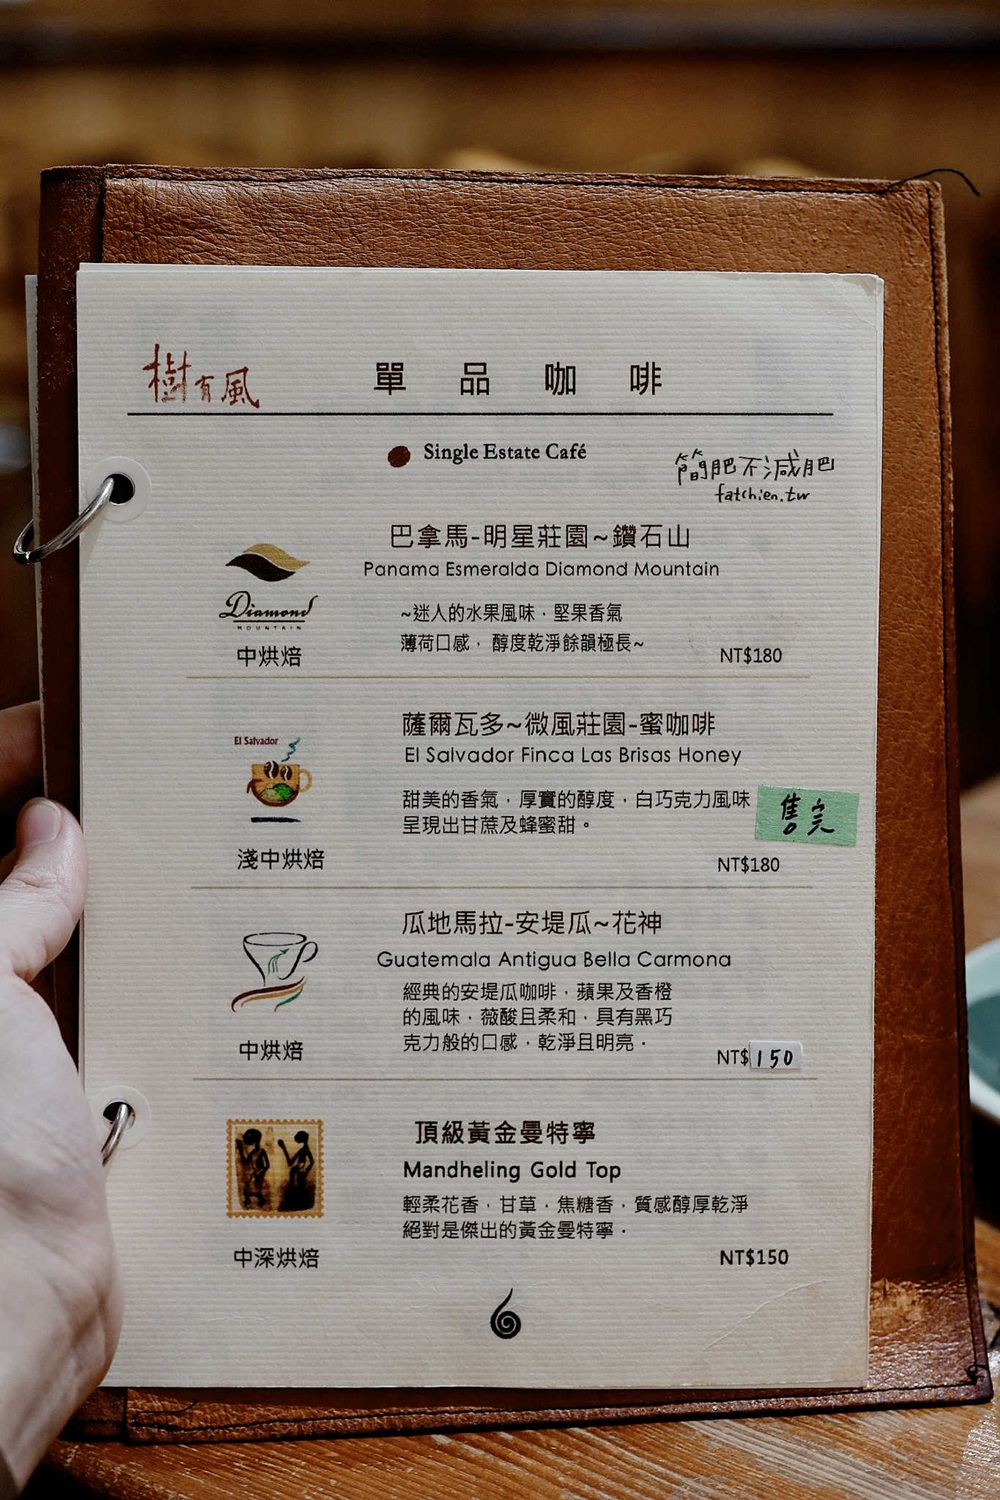 樹有風
單品咖啡
Single Estate Café
簡肥不減肥
fatchien.tw
巴拿馬-明星莊園~鑽石山
Panama Esmeralda Diamond Mountain
Diamond
MOUNTAIN
~迷人的水果風味．堅果香氣
薄荷口感，醇度乾淨餘韻極長~
中烘焙
NT$180
薩爾瓦多~微風莊園-蜜咖啡
El Salvador Finca Las Brisas Honey
El Salvador
甜美的香氣，厚實的醇度，白巧克力風味
呈現出甘蔗及蜂蜜甜。
售完
淺中烘焙
NT$180
瓜地馬拉-安堤瓜~花神
Guatemala Antigua Bella Carmona
經典的安堤瓜咖啡，蘋果及香橙
的風味，薇酸且柔和，具有黑巧
克力般的口感，乾淨且明亮．
中烘焙
NT$150
頂級黃金曼特寧
Mandheling Gold Top
輕柔花香，甘草，焦糖香，質感醇厚乾淨
絕對是傑出的黃金曼特寧．
中深烘焙
NT$150